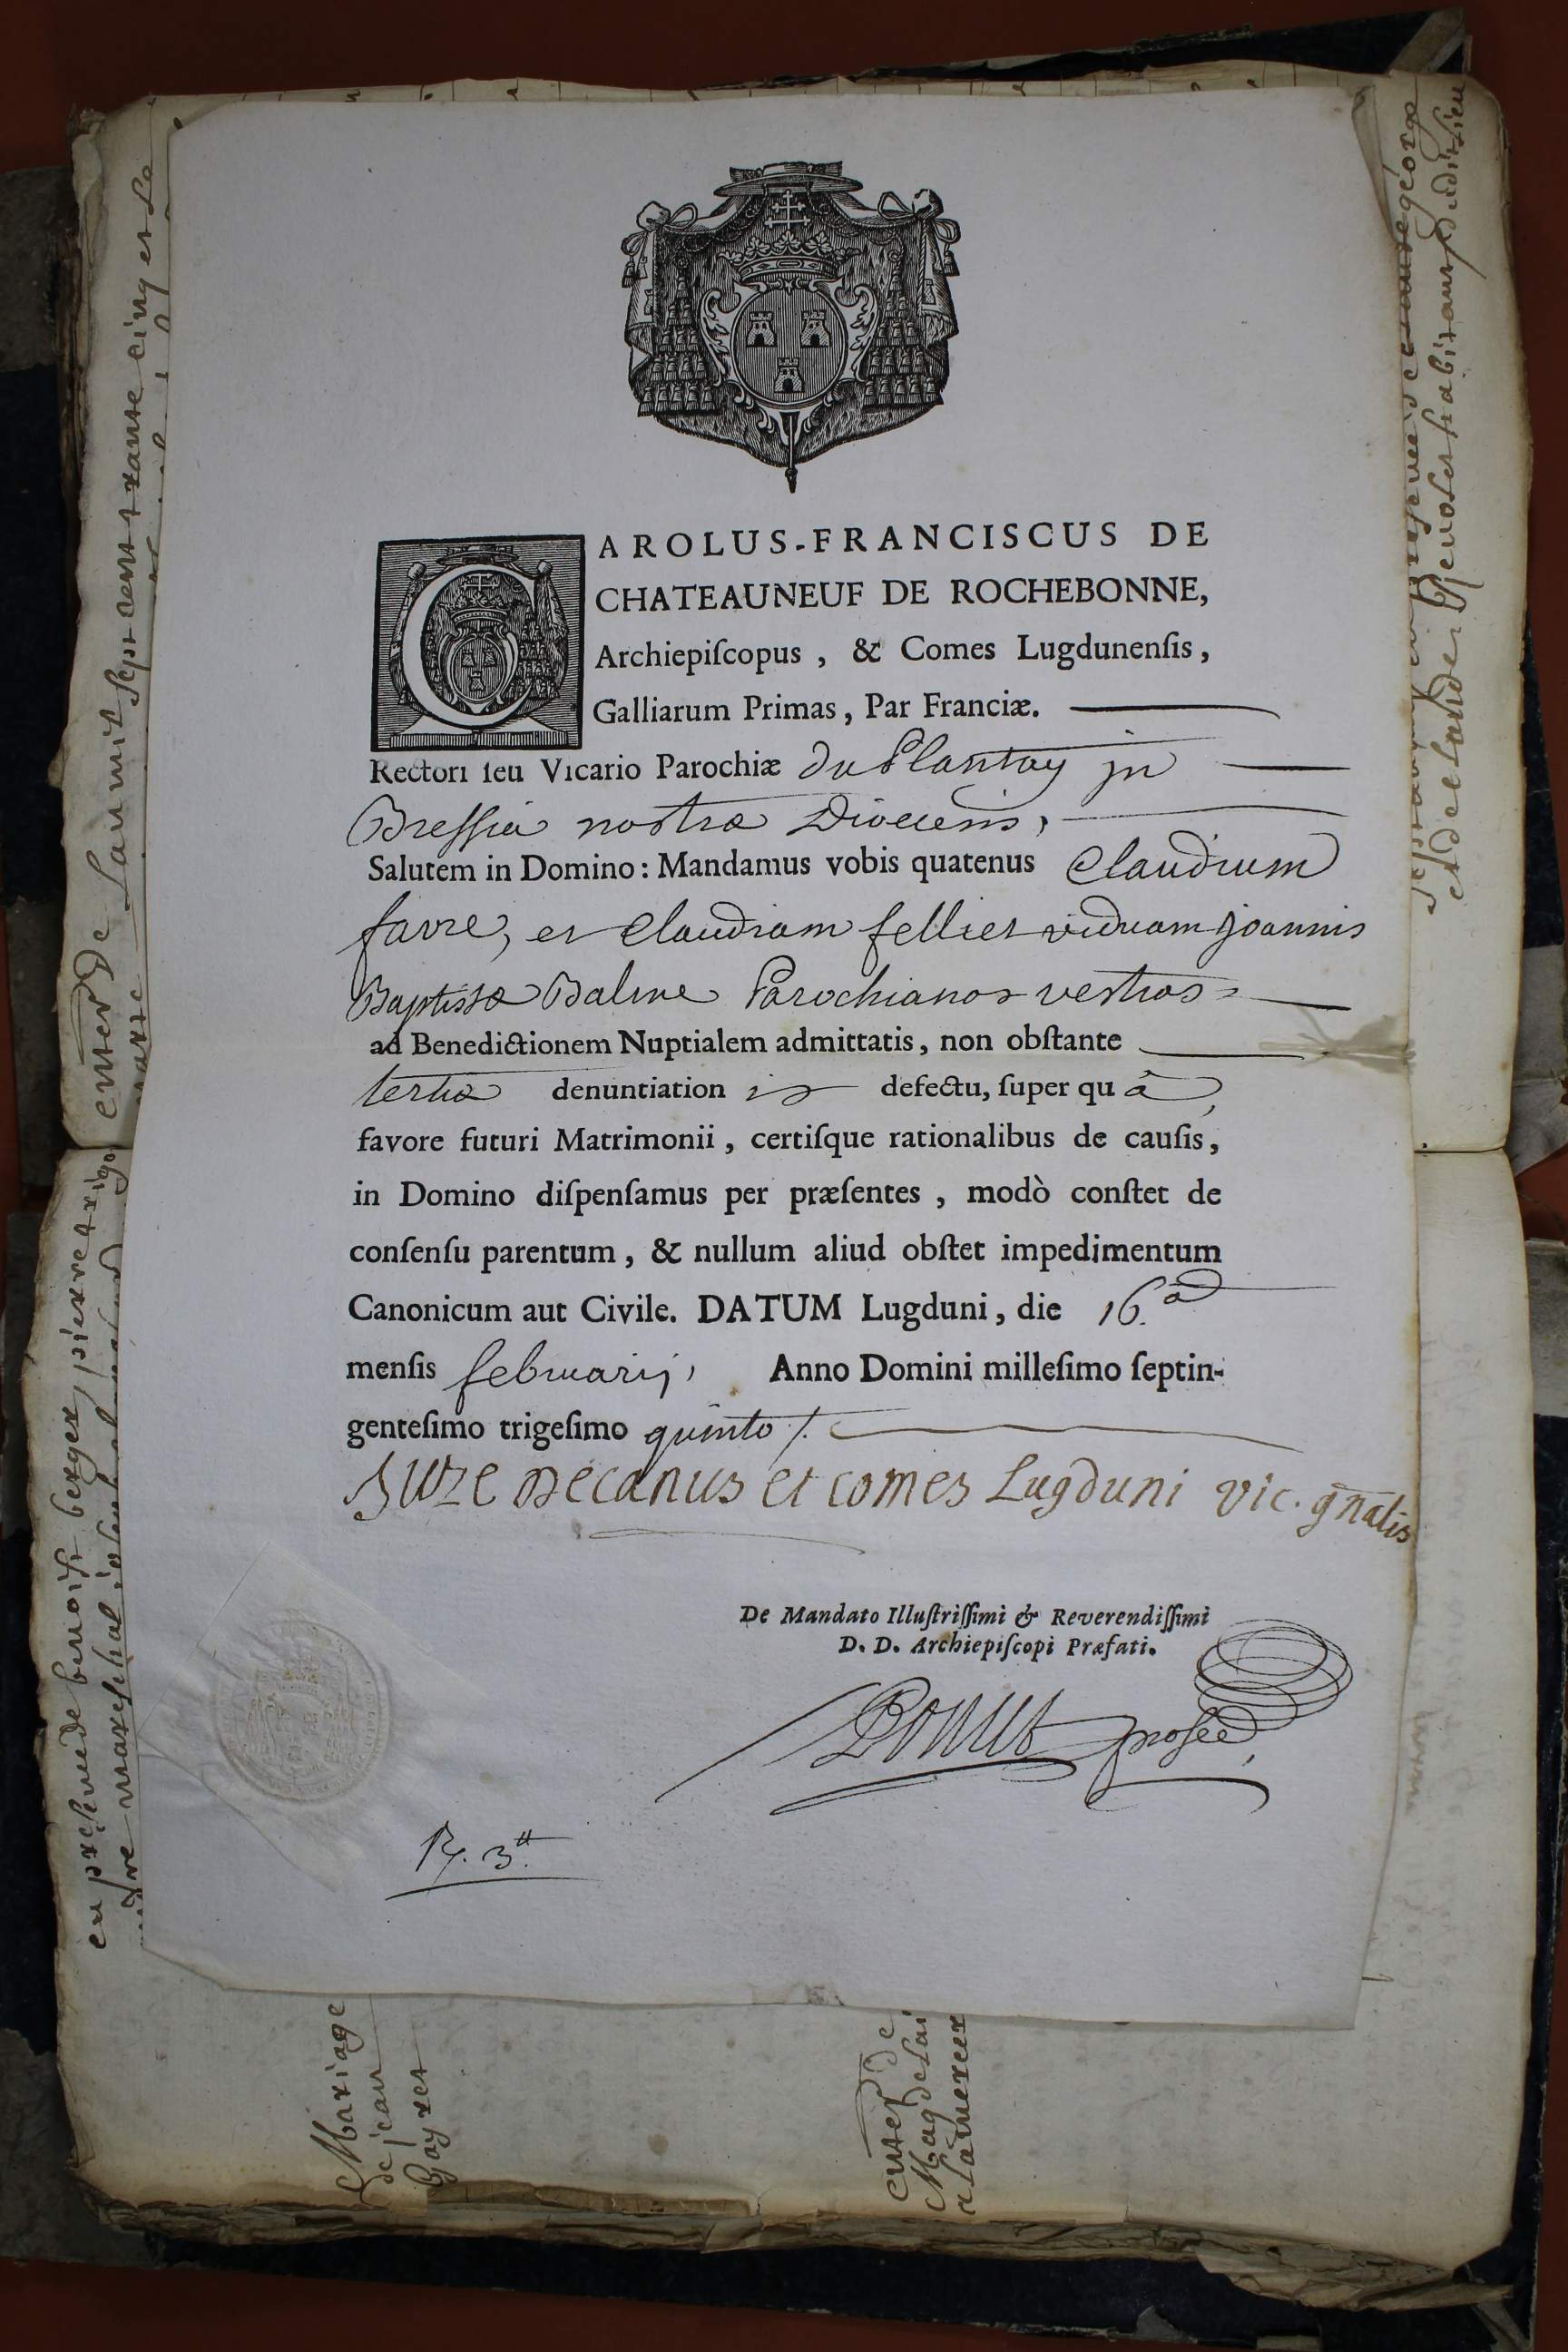 CAROLUS-FRANCISCUS DE
CHATEAUNEUF DE ROCHEBONNE,
Archiepiſcopus, & Comes Lugdunenſis,
Galliarum Primas, Par Franciæ.
Rectori ſeu Vicario Parochiæ du Plantay in
Bressia nostræ Diocesis,
Salutem in Domino: Mandamus vobis quatenus Claudium
favre, et Claudiam felliet viduam Joannis
Baptistæ Balme Parochianos vestros
ad Benedictionem Nuptialem admittatis, non obſtante
tertiæ denuntiationis defectu, ſuper quâ,
favore futuri Matrimonii, certiſque rationalibus de cauſis,
in Domino diſpenſamus per præſentes, modò conſtet de
conſenſu parentum, & nullum aliud obſtet impedimentum
Canonicum aut Civile. DATUM Lugduni, die 16.a
menſis februarij, Anno Domini milleſimo ſeptin-
genteſimo trigeſimo quinto /.
Suze decanus et comes Lugduni vic. gnalis
De Mandato Illuſtriſſimi & Reverendiſſimi
D. D. Archiepiſcopi Præfati.
R. 3.
enter De
Lan mil sept cent trante cinq et le
en présence de benoist berger pierre
mareschal
et de claude habitants dudit lieu
Mariage
de jean
Goyret
enter De
Magdelai